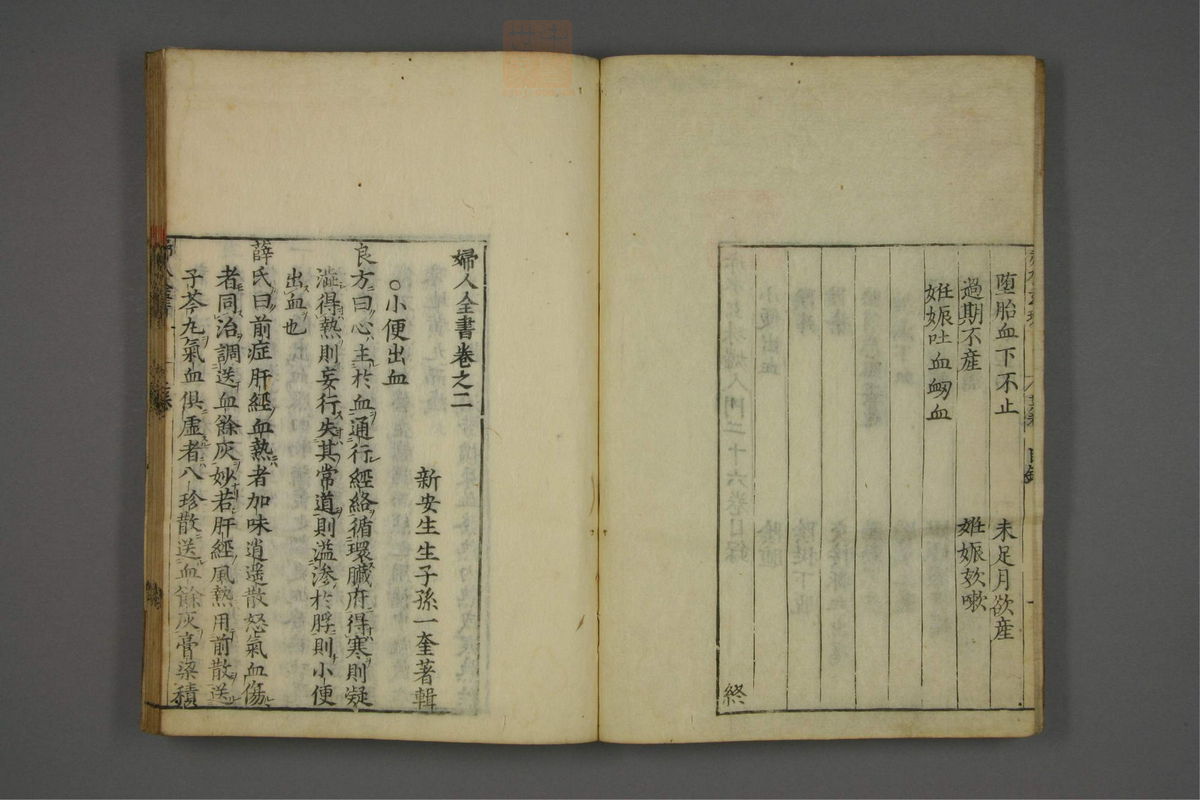 堕胎血下不止　未足月欲産
過期不産　姙娠欬嗽
姙娠吐血衂血
終
婦人全書卷之二
新安生生子孫一奎著輯
○小便出血
良方曰心主於血通行經絡循環臓府得寒則凝
澁得熱則妄行失其常道則溢渗於脬則小便
出血也
薛氏曰前症肝經血熱者加味逍遥散怒氣血傷
者同治調送血餘灰妙若肝經風熱用前散送
子芩丸氣血俱虛者八珍散送血餘灰膏梁積